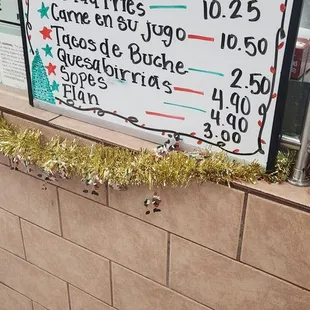 Fries 10.25
Carne en su jugo 10.50
Tacos de Buche 2.50
Quesabirrias 4.90
Sopes 4.90
Flan 3.00